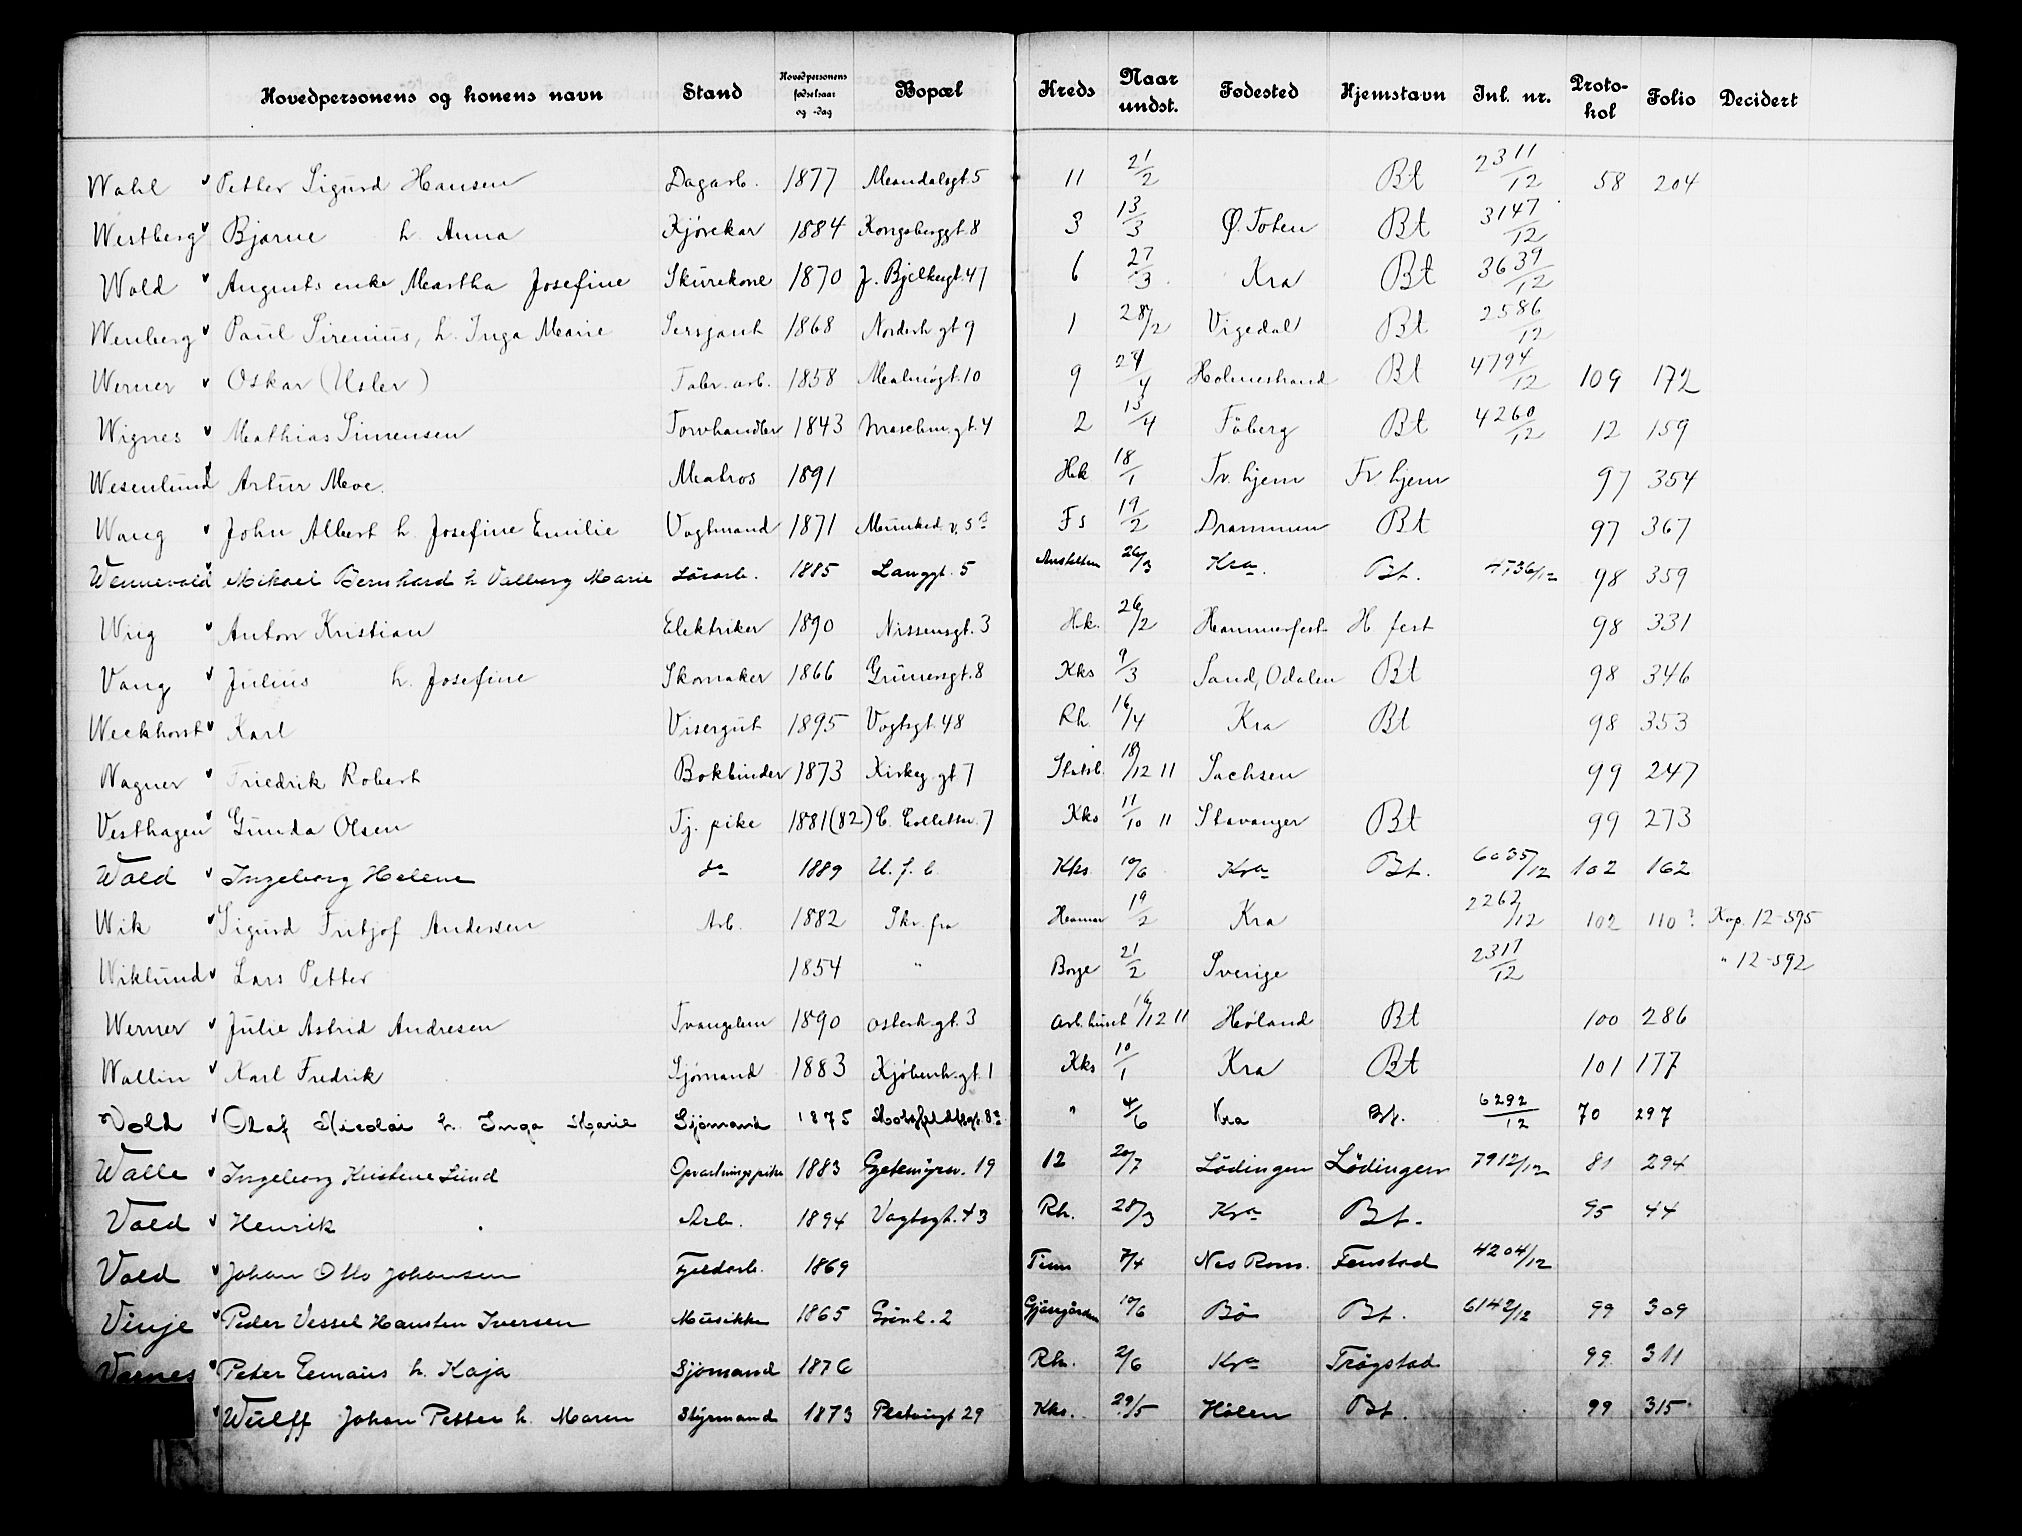 Hovedpersonens og konens navn Stand Hovedpersonens fødselsaar og -dag Bopæl Kreds Naar undst. Fødested Hjemstavn Inl. nr. Protokol Folio Decidert
Wahl Petter Sigurd Hansen Dagarb. 1877 Mandalsgt. 5 11 21/2 Bt 2311/12 58 204
Westberg Bjarne h. Anna Kjørekar 1884 Kongsberggt. 8 3 13/3 Ø. Toten Bt 3147/12
Wold Augusts enke Martha Josefine Skurekone 1870 J. Bjelkesgt. 41 6 27/3 Kra Bt 3639/12
Wenberg Paul Sirenius, h. Inga Marie Sersjant 1868 Norderh. gt 9 1 28/2 Vigedal Bt 2586/12
Werner Oskar (Usler) Fabr. arb. 1858 Malmøgt. 10 9 29/4 Holmestrand Bt 4794/12 109 172
Wignes Mathias Simensen Torvhandler 1843 Maschin. gt. 4 2 13/4 Fåberg Bt 4260/12 12 159
Wesenlund Artur Moe. Matros 1891 Hk 18/1 Tr. hjem Tr. hjem 97 354
Wang John Albert h. Josefine Emilie Vogtmand 1871 Munked. v. 5 a Fs 19/2 Drammen Bt 97 367
Wennevold Mikael Bernhard h Valborg Marie Løsarb. 1885 Langgt. 5 26/3 Kra. Bt. 4736/12 98 359
Wiig Anton Kristian Elektriker 1890 Nissensgt. 3 Hk. 26/2 Hammerfest H. fest 98 331
Vang Julius h. Josefine Skomaker 1866 Grünersgt. 8 Kks 9/3 Sand, Odalen Bt 98 346
Weckhorst Karl Visergut 1895 Vogtsgt. 48 Rh. 16/4 Kra Bt 98 353
Wagner Friedrik Robert Bokbinder 1873 Kirkeg. gt 7 18/12 11 Sachsen 99 247
Vesthagen Gunda Olsen Tj. pike 1881(82) C. Collettsv. 7 Kks 11/10 11 Stavanger Bt 99 273
Wold Ingeborg Helene do 1889 U. f. b. Kks. 10/6 Kra Bt. 6035/12 102 162
Wik Sigurd Fritjof Andersen Arb. 1882 Skr. fra Hamar 19/2 Kra 2262/12 102 110? Kop. 12-595
Wiklund Lars Petter 1854 " Borge 21/2 Sverige 2317/12 " 12-592
Werner Julie Astrid Andresen Tvangslem 1890 Osterh. gt. 3 Arb. huset 16/12 11 Høland Bt 100 286
Wallin Karl Fredrik Sjømand 1883 Kjøbenh. gt. 1 Kks 10/1 Kra Bt 101 177
Vold Olaf Nicolai h. Inga Marie Sjømand 1875 Motzfeldtsgt. 8 a " 4/6 Kra Bt. 6292/12 70 297
Walle Ingeborg Kristine Lund Opvartningspike 1883 12 20/7 Lödingen Lödingen 7912/12 81 294
Vold Henrik Arb. 1894 Vogtsgt. 43 Rh. 28/3 Kra Bt. 95 44
Vold Johan Otto Johansen Fjeldarb. 1869 Tinn 7/4 Nes Rom. Fenstad 4204/12
Vinje Peder Vessel Hansten Iversen Musikker 1865 Grönl. 2 10/6 Bö Bt. 6142/12 99 309
Varnes Peter Emaus h. Kaja Sjømand 1876 Rh. 2/6 Kra Trögstad 99 311
Wülff Johan Petter h. Maren Styrmand 1873 29 Kks. 29/5 Hölen Bt. 99 315